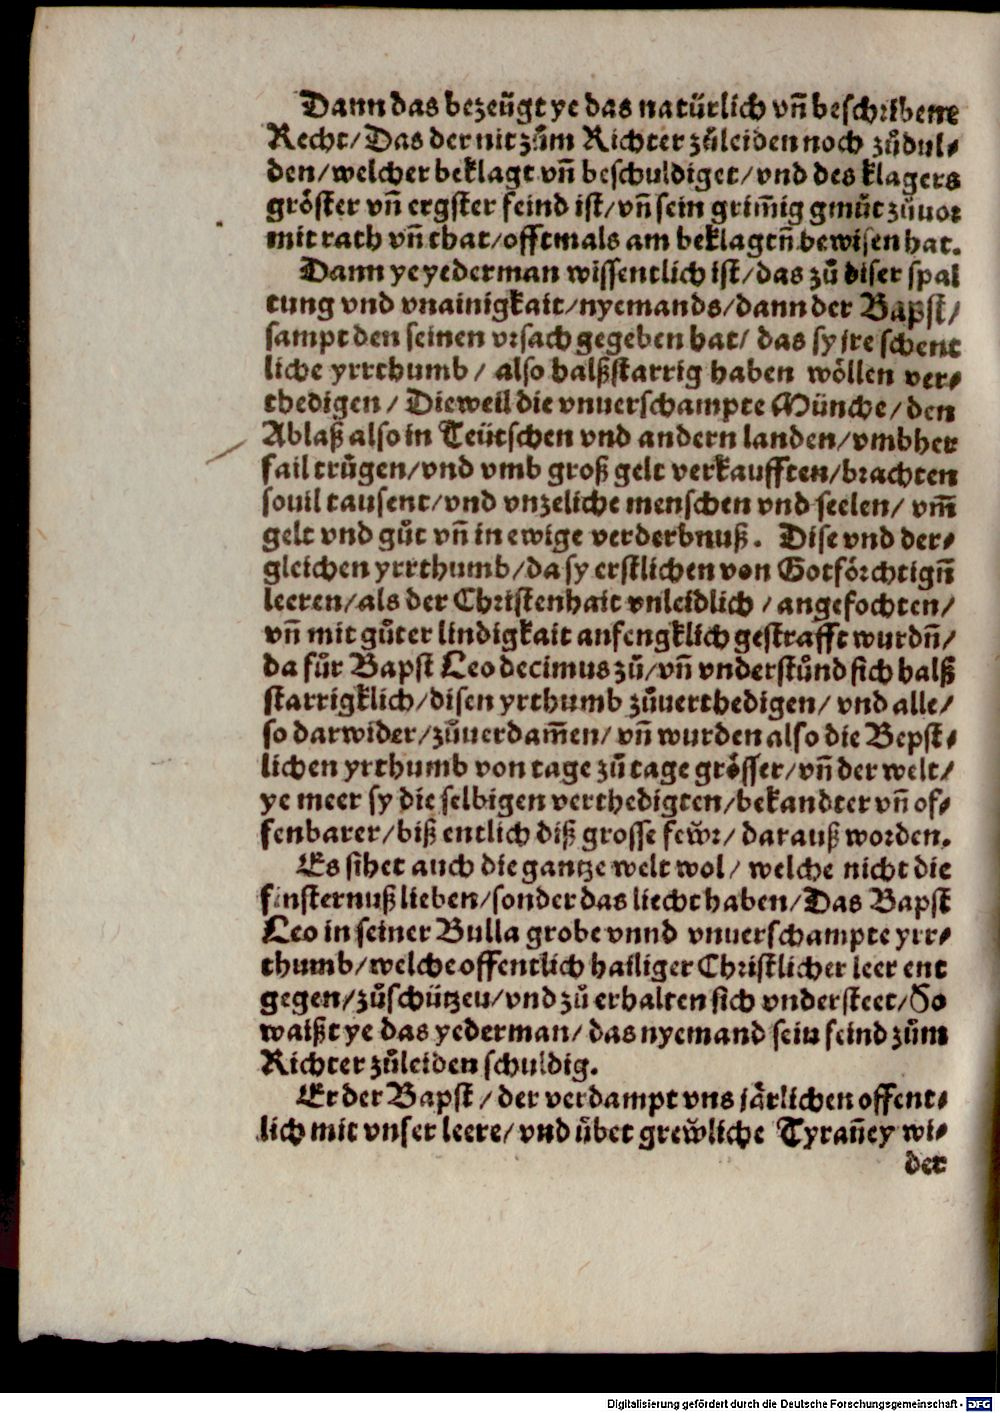 Dann das bezeügt ye das natürlich vn̄ beschribene
Recht/ Das der nit zům Richter zůleiden noch zůdul⸗
den/ welcher beklagt vn̄ beschuldiget/ vnd des klagers
gröster vn̄ ergster feind ist/ vn̄ sein grim̄ig gmůt zůuor
mit rath vn̄ that/ offtmals am beklagtn̄ bewisen hat.
Dann ye yederman wissentlich ist/ das zů diser spal
tung vnd vnainigkait/ nyemands/ dann der Bapst/
sampt den seinen vrsach gegeben hat/ das sy jre schent
liche yrrthumb/ also halßstarrig haben wöllen ver⸗
thedigen/ Dieweil die vnuerschampte Münche/ den
Ablaß also in Teütschen vnd andern landen/ vmbher
fail trůgen/ vnd vmb groß gelt verkaufften/ brachten
souil tausent/ vnd vnzeliche menschen vnd seelen/ vm̄
gelt vnd gůt vn̄ in ewige verderbnuß. Dise vnd der⸗
gleichen yrrthumb/ da sy erstlichen von Gotförchtign̄
leeren/ als der Christenhait vnleidlich/ angefochten/
vn̄ mit gůter lindigkait anfengklich gestrafft wurdn̄/
da fůr Bapst Leo decimus zů/ vn̄ vnderstůnd sich halß
starrigklich/ disen yrthumb zůuerthedigen/ vnd alle/
so darwider/ zůuerdam̄en/ vn̄ wurden also die Bepst⸗
lichen yrthumb von tage zů tage grösser/ vn̄ der welt/
ye meer sy die selbigen verthedigten/ bekandter vn̄ of⸗
fenbarer/ biß entlich diß grosse feẅr/ darauß worden.
Es sihet auch die gantze welt wol/ welche nicht die
finsternuß lieben/ sonder das liecht haben/ Das Bapst
Leo in seiner Bulla grobe vnnd vnuerschampte yrr⸗
thumb/ welche offentlich hailiger Christlicher leer ent
gegen/ zůschützen/ vnd zů erhalten sich vndersteet/ So
waißt ye das yederman/ das nyemand sein feind zům
Richter zůleiden schuldig.
Er der Bapst/ der verdampt vns järlichen offent⸗
lich mit vnser leere/ vnd übet greẅliche Tyran̄ey wi⸗
der
Digitalisierung gefördert durch die Deutsche Forschungsgemeinschaft - DFG